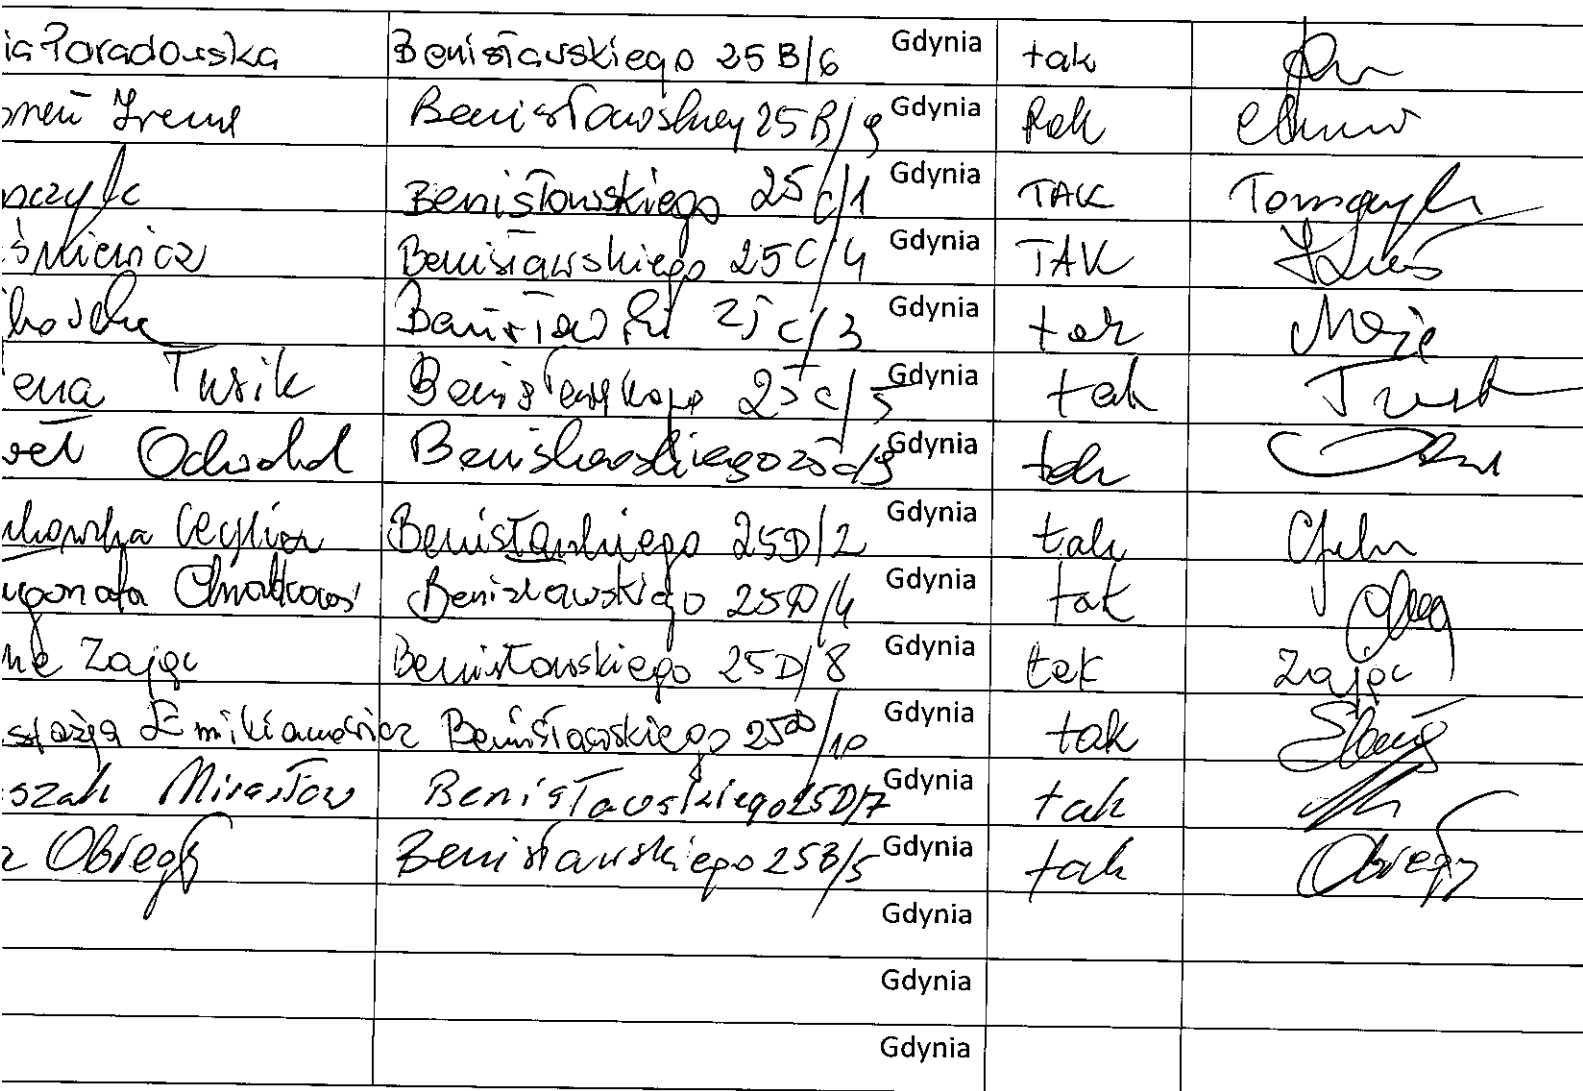 ia Poradowska Benisławskiego 25B/6 Gdynia tak
Irena Benisławskiej 25B/9 Gdynia tak
czyk Benisławskiego 25C/1 Gdynia TAK Tomczyk
śniewicz Benisławskiego 25C/4 Gdynia TAK
Benisławski 25C/3 Gdynia tak
ena Tusik Benisławskiego 25C/5 Gdynia tak Tusik
Benisławskiego 25C/9 Gdynia tak
kowska Cecylia Benisławskiego 25D/2 Gdynia tak
Benisławskiego 25D/4 Gdynia tak
Zając Benisławskiego 25D/8 Gdynia tak Zając
Emilianowicz Benisławskiego 25D/10 Gdynia tak
szak Mirosław Benisławskiego 25D/7 tak
Obregę Benisławskiego 25B/5 Gdynia tak Obregę
Gdynia
Gdynia
Gdynia